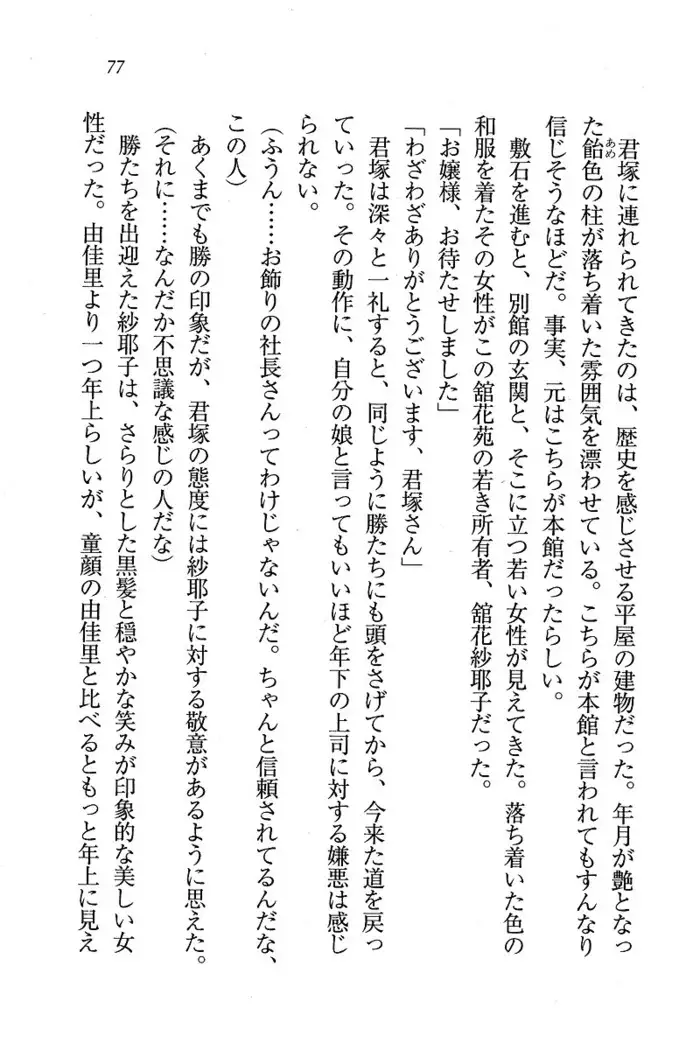 77
君塚に連れられてきたのは、歴史を感じさせる平屋の建物だった。年月が艶となっ
た飴色の柱が落ち着いた雰囲気を漂わせている。こちらが本館と言われてもすんなり
あめ
信じそうなほどだ。事実、元はこちらが本館だったらしい。
敷石を進むと、別館の玄関と、そこに立つ若い女性が見えてきた。落ち着いた色の
和服を着たその女性がこの舘花苑の若き所有者、舘花紗耶子だった。
「お嬢様、お待たせしました」
「わざわざありがとうございます、君塚さん」
君塚は深々と一礼すると、同じように勝たちにも頭をさげてから、今来た道を戻っ
ていった。その動作に、自分の娘と言ってもいいほど年下の上司に対する嫌悪は感じ
られない。
(ふうん……お飾りの社長さんってわけじゃないんだ。ちゃんと信頼されてるんだな、
この人)
あくまでも勝の印象だが、君塚の態度には紗耶子に対する敬意があるように思えた。
(それに……なんだか不思議な感じの人だな)
勝たちを出迎えた紗耶子は、さらりとした黒髪と穏やかな笑みが印象的な美しい女
性だった。由佳里より一つ年上らしいが、童顔の由佳里と比べるともっと年上に見え